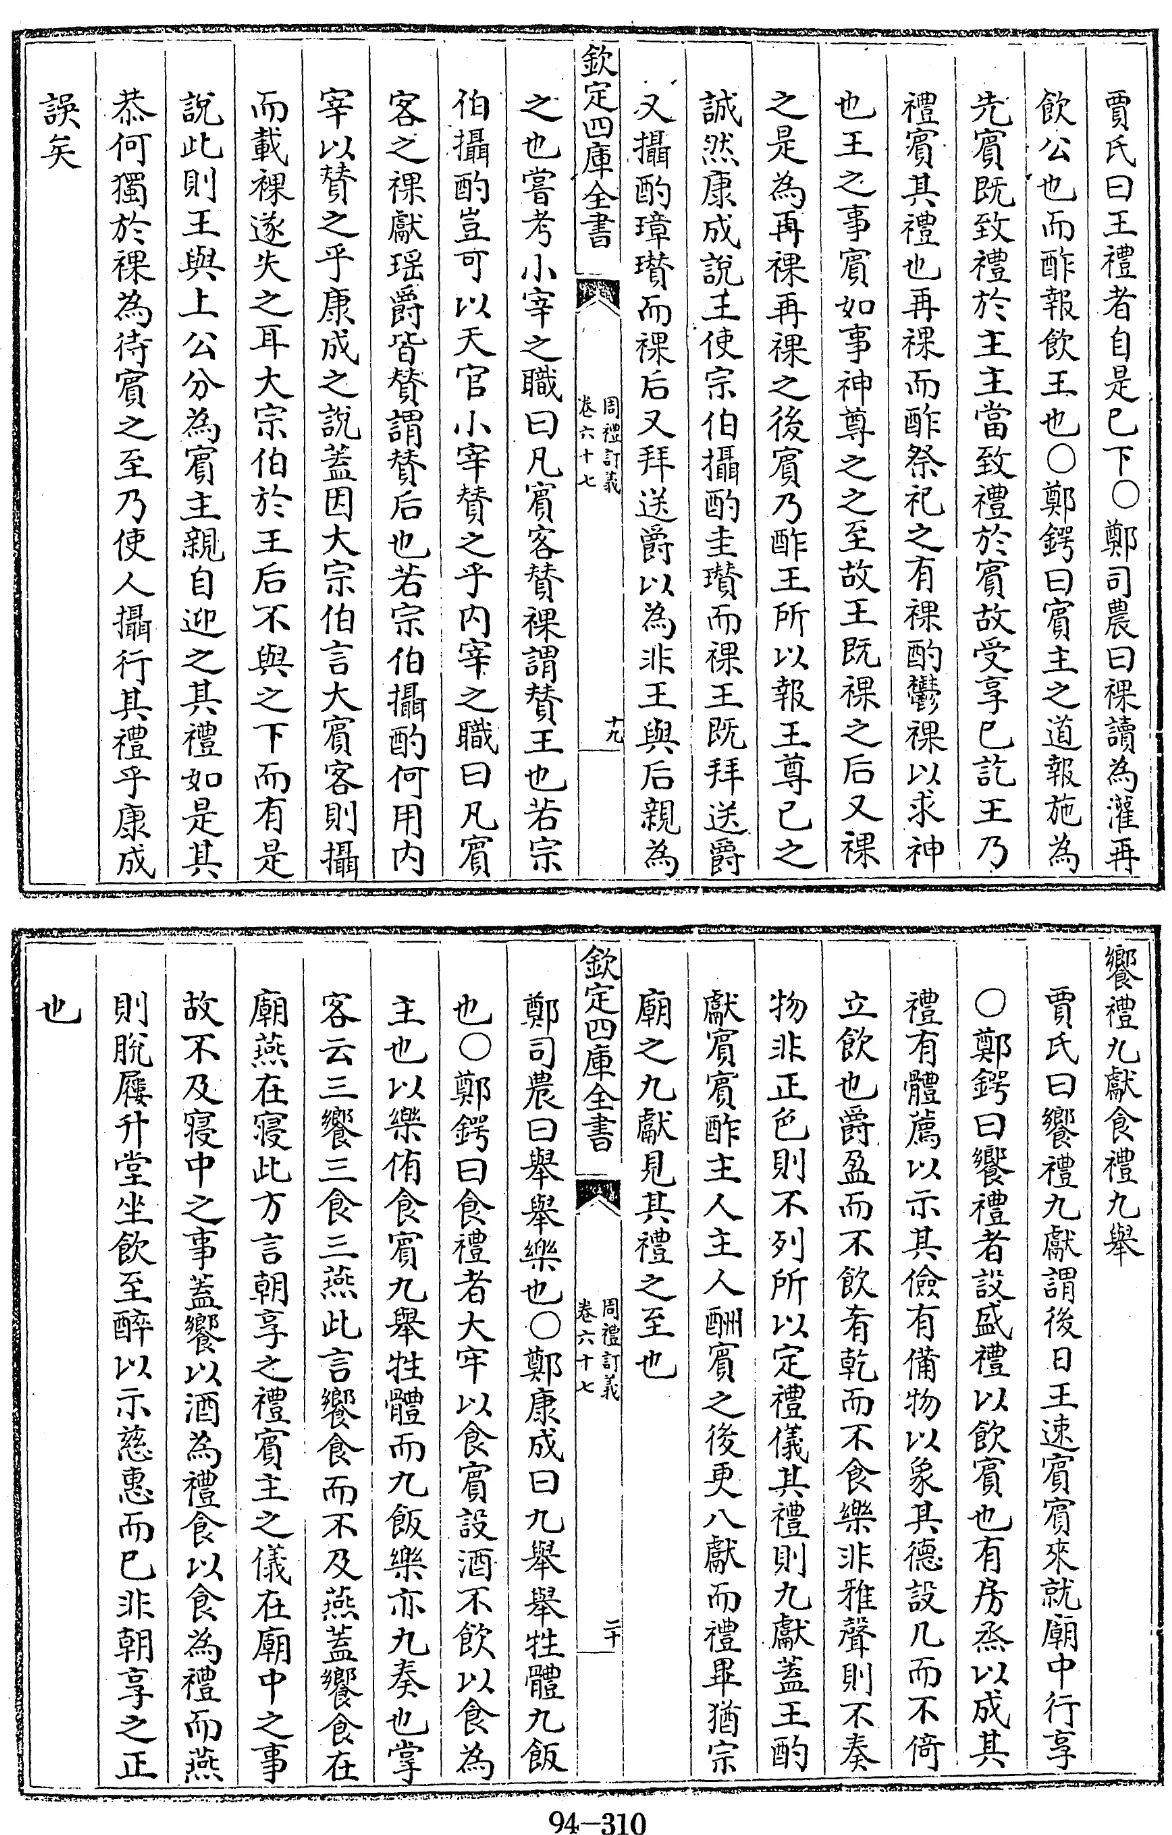 賈氏曰王禮者自是已下〇鄭司農曰祼讀為灌再
飲公也而酢報飲王也〇鄭鍔曰賓主之道報施為
先賓既致禮於主主當致禮於賓故受享已訖王乃
禮賓其禮也再祼而酢祭祀之有祼酌鬱祼以求神
也王之事賓如事神尊之之至故王既祼之后又祼
之是為再祼再祼之後賓乃酢王所以報王尊已之
誠然康成說王使宗伯攝酌圭瓉而祼王既拜送爵
又攝酌璋瓉而祼后又拜送爵以為非王與后親為
欽定四庫全書
周禮訂義
卷六十七
十九
之也嘗考小宰之職曰凡賓客賛祼謂賛王也若宗
伯攝酌豈可以天官小宰賛之乎内宰之職曰凡賓
客之祼獻瑶爵皆賛謂賛后也若宗伯攝酌何用内
宰以賛之乎康成之說蓋因大宗伯言大賓客則攝
而載祼遂失之耳大宗伯於王后不與之下而有是
說此則王與上公分為賓主親自迎之其禮如是其
恭何獨於祼為待賓之至乃使人攝行其禮乎康成
誤矣
饗禮九獻食禮九舉
賈氏曰饗禮九獻謂後日王速賓賓來就廟中行享
〇鄭鍔曰饗禮者設盛禮以飲賓也有房烝以成其
禮有體薦以示其儉有備物以象其德設几而不倚
立飲也爵盈而不飲肴乾而不食樂非雅聲則不奏
物非正色則不列所以定禮儀其禮則九獻蓋王酌
獻賓賓酢主人主人酬賓之後更八獻而禮畢猶宗
廟之九獻見其禮之至也
欽定四庫全書
周禮訂義
卷六十七
二十
鄭司農曰舉舉樂也〇鄭康成曰九舉舉牲體九飯
也〇鄭鍔曰食禮者大牢以食賓設酒不飲以食為
主也以樂侑食賓九舉牲體而九飯樂亦九奏也掌
客云三饗三食三燕此言饗食而不及燕蓋饗食在
廟燕在寢此方言朝享之禮賓主之儀在廟中之事
故不及寢中之事蓋饗以酒為禮食以食為禮而燕
則脫屨升堂坐飲至醉以示慈惠而已非朝享之正
也
94-310